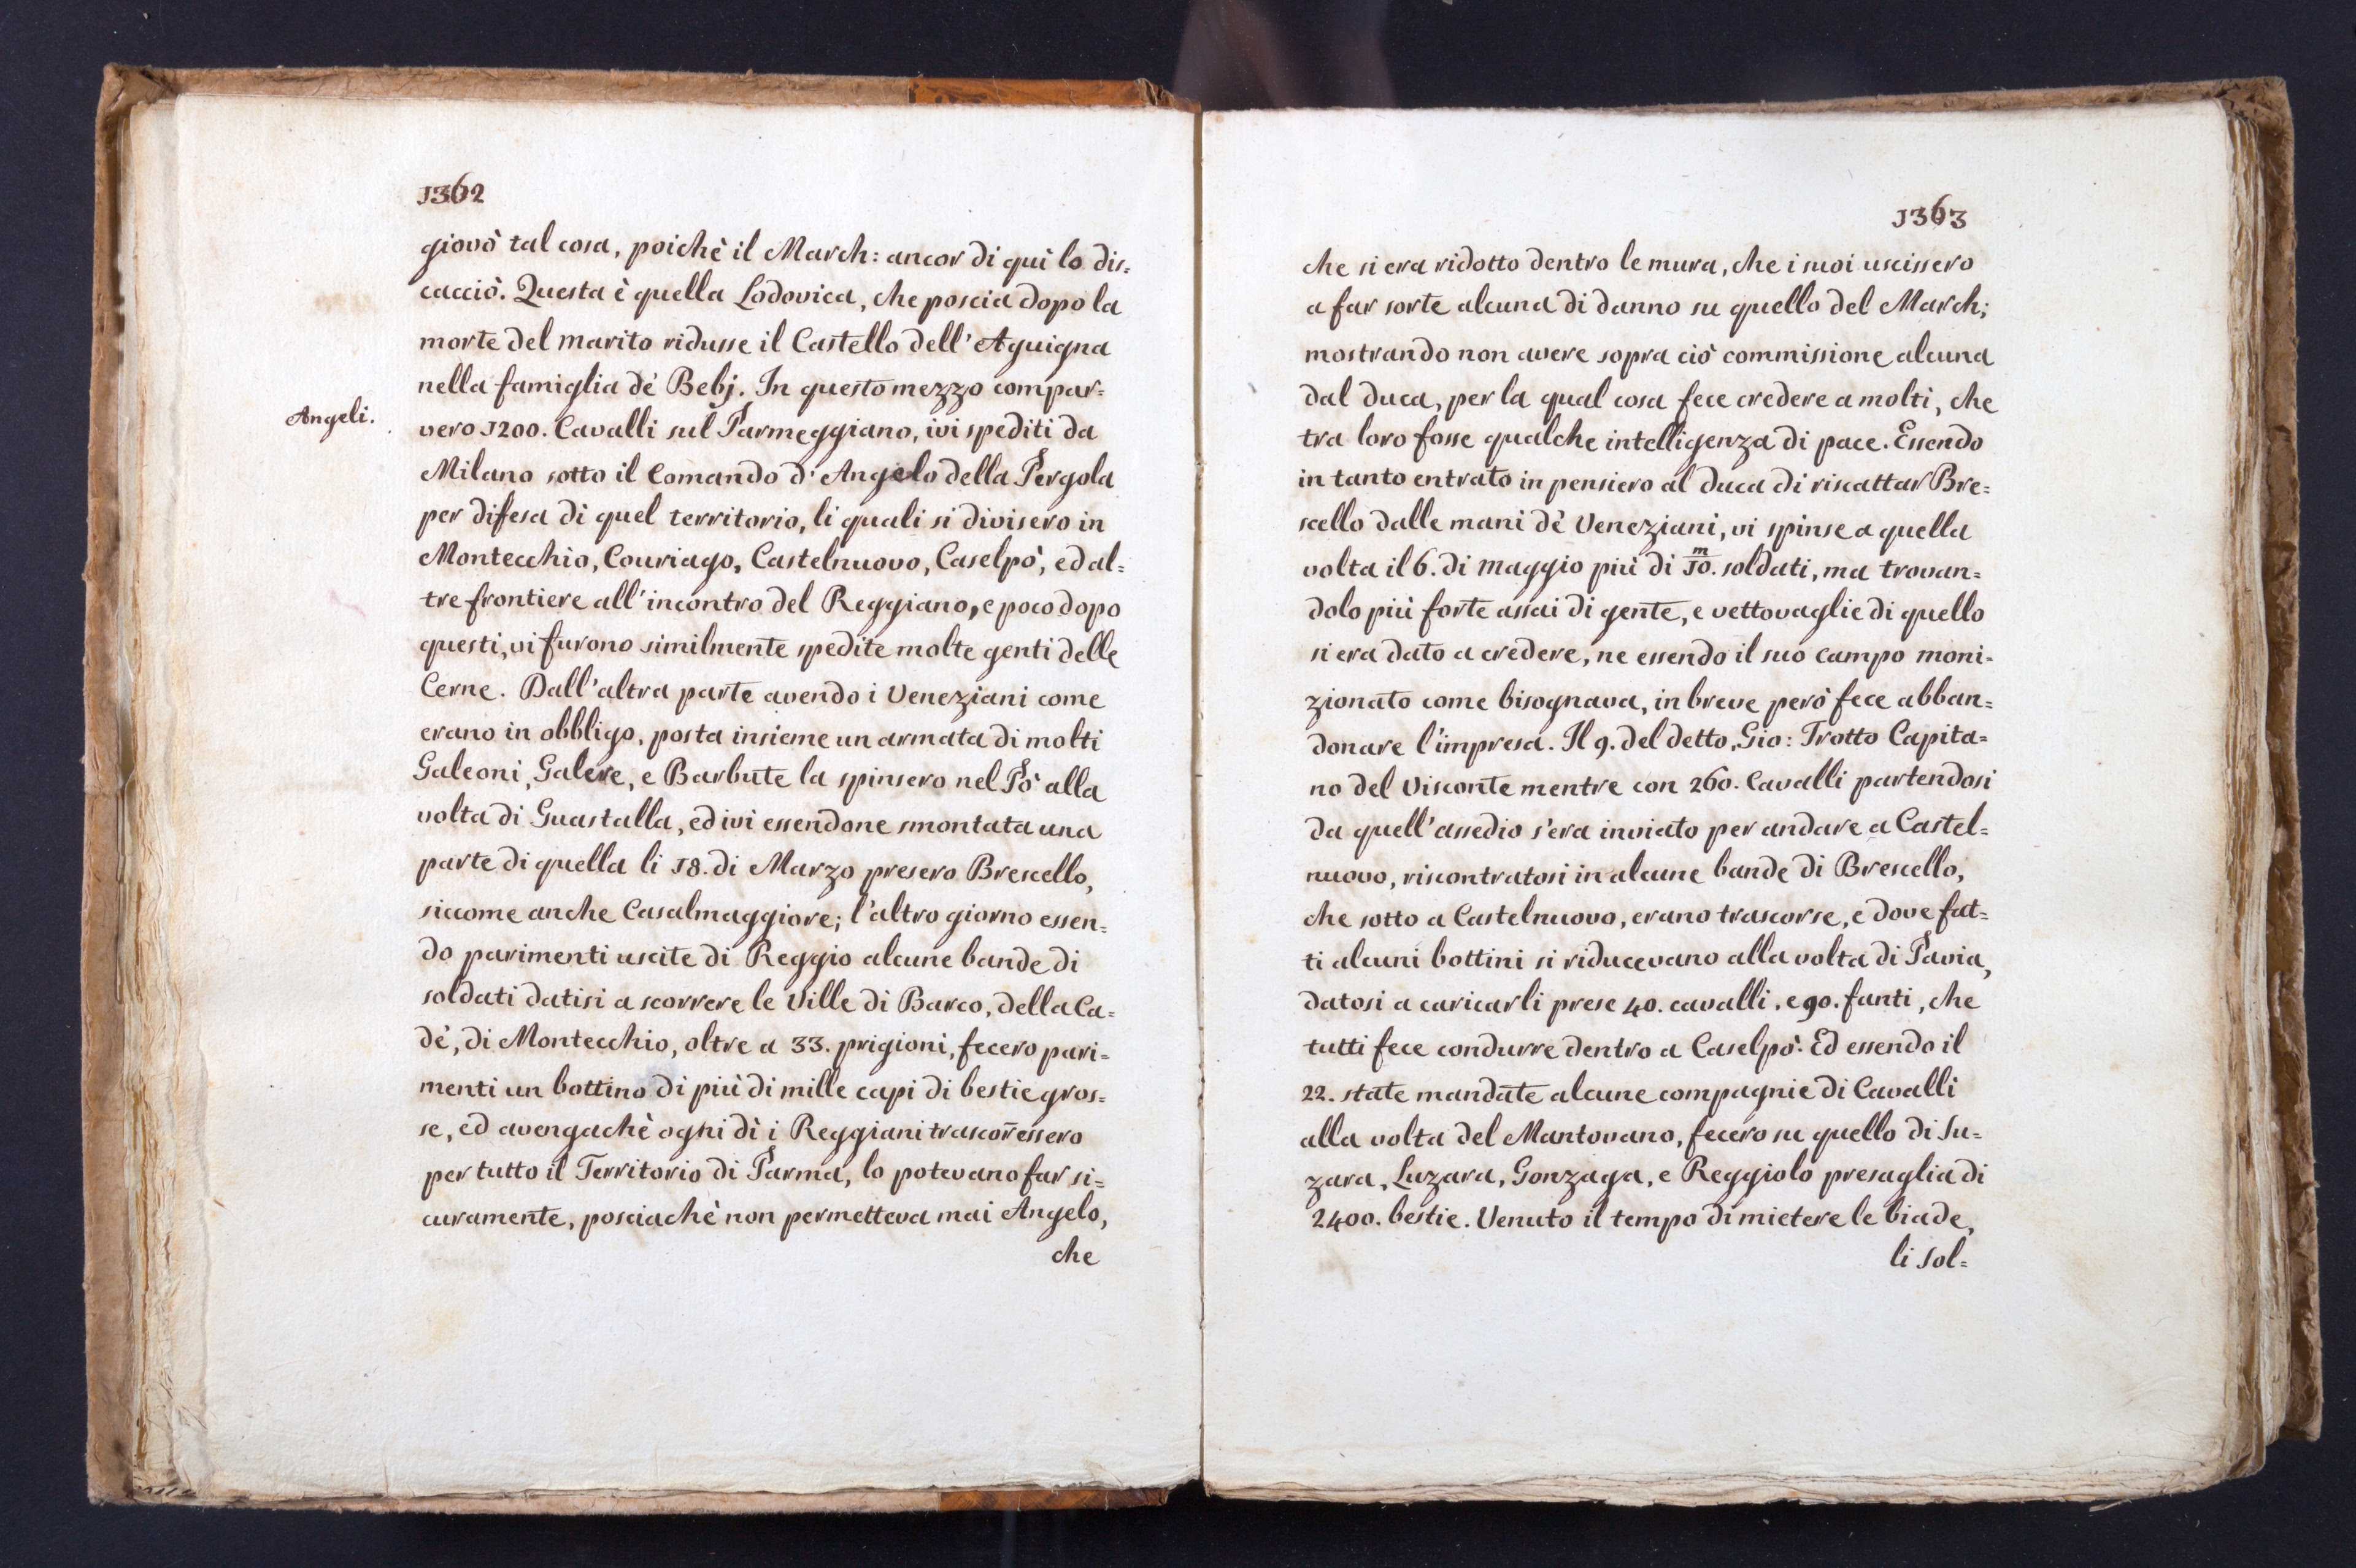 1362
giovò tal cosa, poichè il March: ancor di quì lo dis=
cacciò. Questa è quella Lodovica, che poscia dopo la
morte del marito ridusse il Castello dell' Aguigna
nella famiglia dè Bebj. In questo mezzo compar=
Angeli.
vero 1200. Cavalli sul Parmeggiano, ivi spediti da
Milano sotto il Comando d' Angelo della Pergola
per difesa di quel territorio, li quali si divisero in
Montecchio, Couriago, Castelnuovo, Caselpò, ed al=
tre frontiere all' incontro del Reggiano, e poco dopo
questi, vi furono similmente spedite molte genti delle
Cerne. Dall' altra parte avendo i Veneziani come
erano in obbligo, posta insieme un armata di molti
Galeoni, Galere, e Barbute la spinsero nel Pò alla
volta di Guastalla, ed ivi essendone smontata una
parte di quella li 18. di Marzo presero Brescello,
siccome anche Casalmaggiore; l'altro giorno essen=
do parimenti uscite di Reggio alcune bande di
soldati datisi a scorrere le Ville di Barco, della Ca=
dè, di Montecchio, oltre a 33. prigioni, fecero pari=
menti un bottino di più di mille capi di bestie gros=
se, ed avengachè ogni dì i Reggiani trascor̄essero
per tutto il Territorio di Parma, lo potevano far si=
curamente, posciachè non permetteva mai Angelo,
che
1363
che si era ridotto dentro le mura, che i suoi uscissero
a far sorte alcuna di danno su quello del March;
mostrando non avere sopra ciò commissione alcuna
dal Duca, per la qual cosa fece credere a molti, che
tra loro fosse qualche intelligenza di pace. Essendo
in tanto entrato in pensiero al Duca di riscattar Bre=
scello dalle mani dè Veneziani, vi spinse a quella
volta il 6. di Maggio più di 10.<sup>m</sup> soldati, ma trovan=
dolo più forte assai di gente, e vettovaglie di quello
si era dato a credere, ne essendo il suo campo moni=
zionato come bisognava, in breve però fece abban=
donare l'impresa. Il 9. del detto, Gio: Trotto Capita=
no del Visconte mentre con 260. Cavalli partendosi
da quell' assedio s'era inviato per andare a Castel=
nuovo, riscontratosi in alcune bande di Brescello,
che sotto a Castelnuovo, erano trascorse, e dove fat=
ti alcuni bottini si riducevano alla volta di Pavia,
datosi a caricarli prese 40. cavalli, e 90. fanti, che
tutti fece condurre dentro a Caselpò. Ed essendo il
22. state mandate alcune compagnie di Cavalli
alla volta del Mantovano, fecero su quello di Su=
zara, Luzara, Gonzaga, e Reggiolo presaglia di
2400. bestie. Venuto il tempo di mietere le biade,
li Sol=